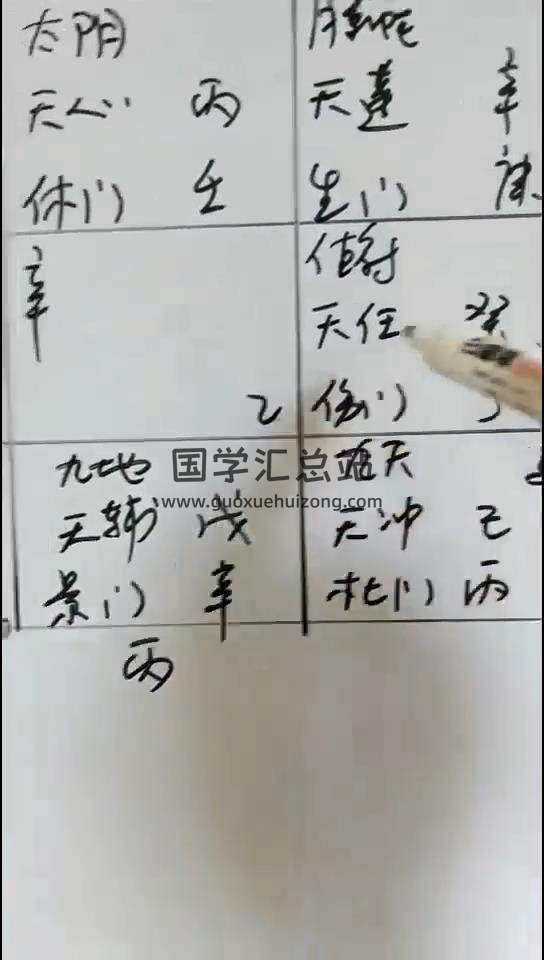 太阴
天心 丙
休门 壬
螣蛇
天蓬 辛
生门 庚
辛
乙
值符
天任 癸
伤门
九地
天辅 戊
景门 辛
九天
天冲 己
杜门 丙
丙
国学汇总站
www.guoxuehuizong.com